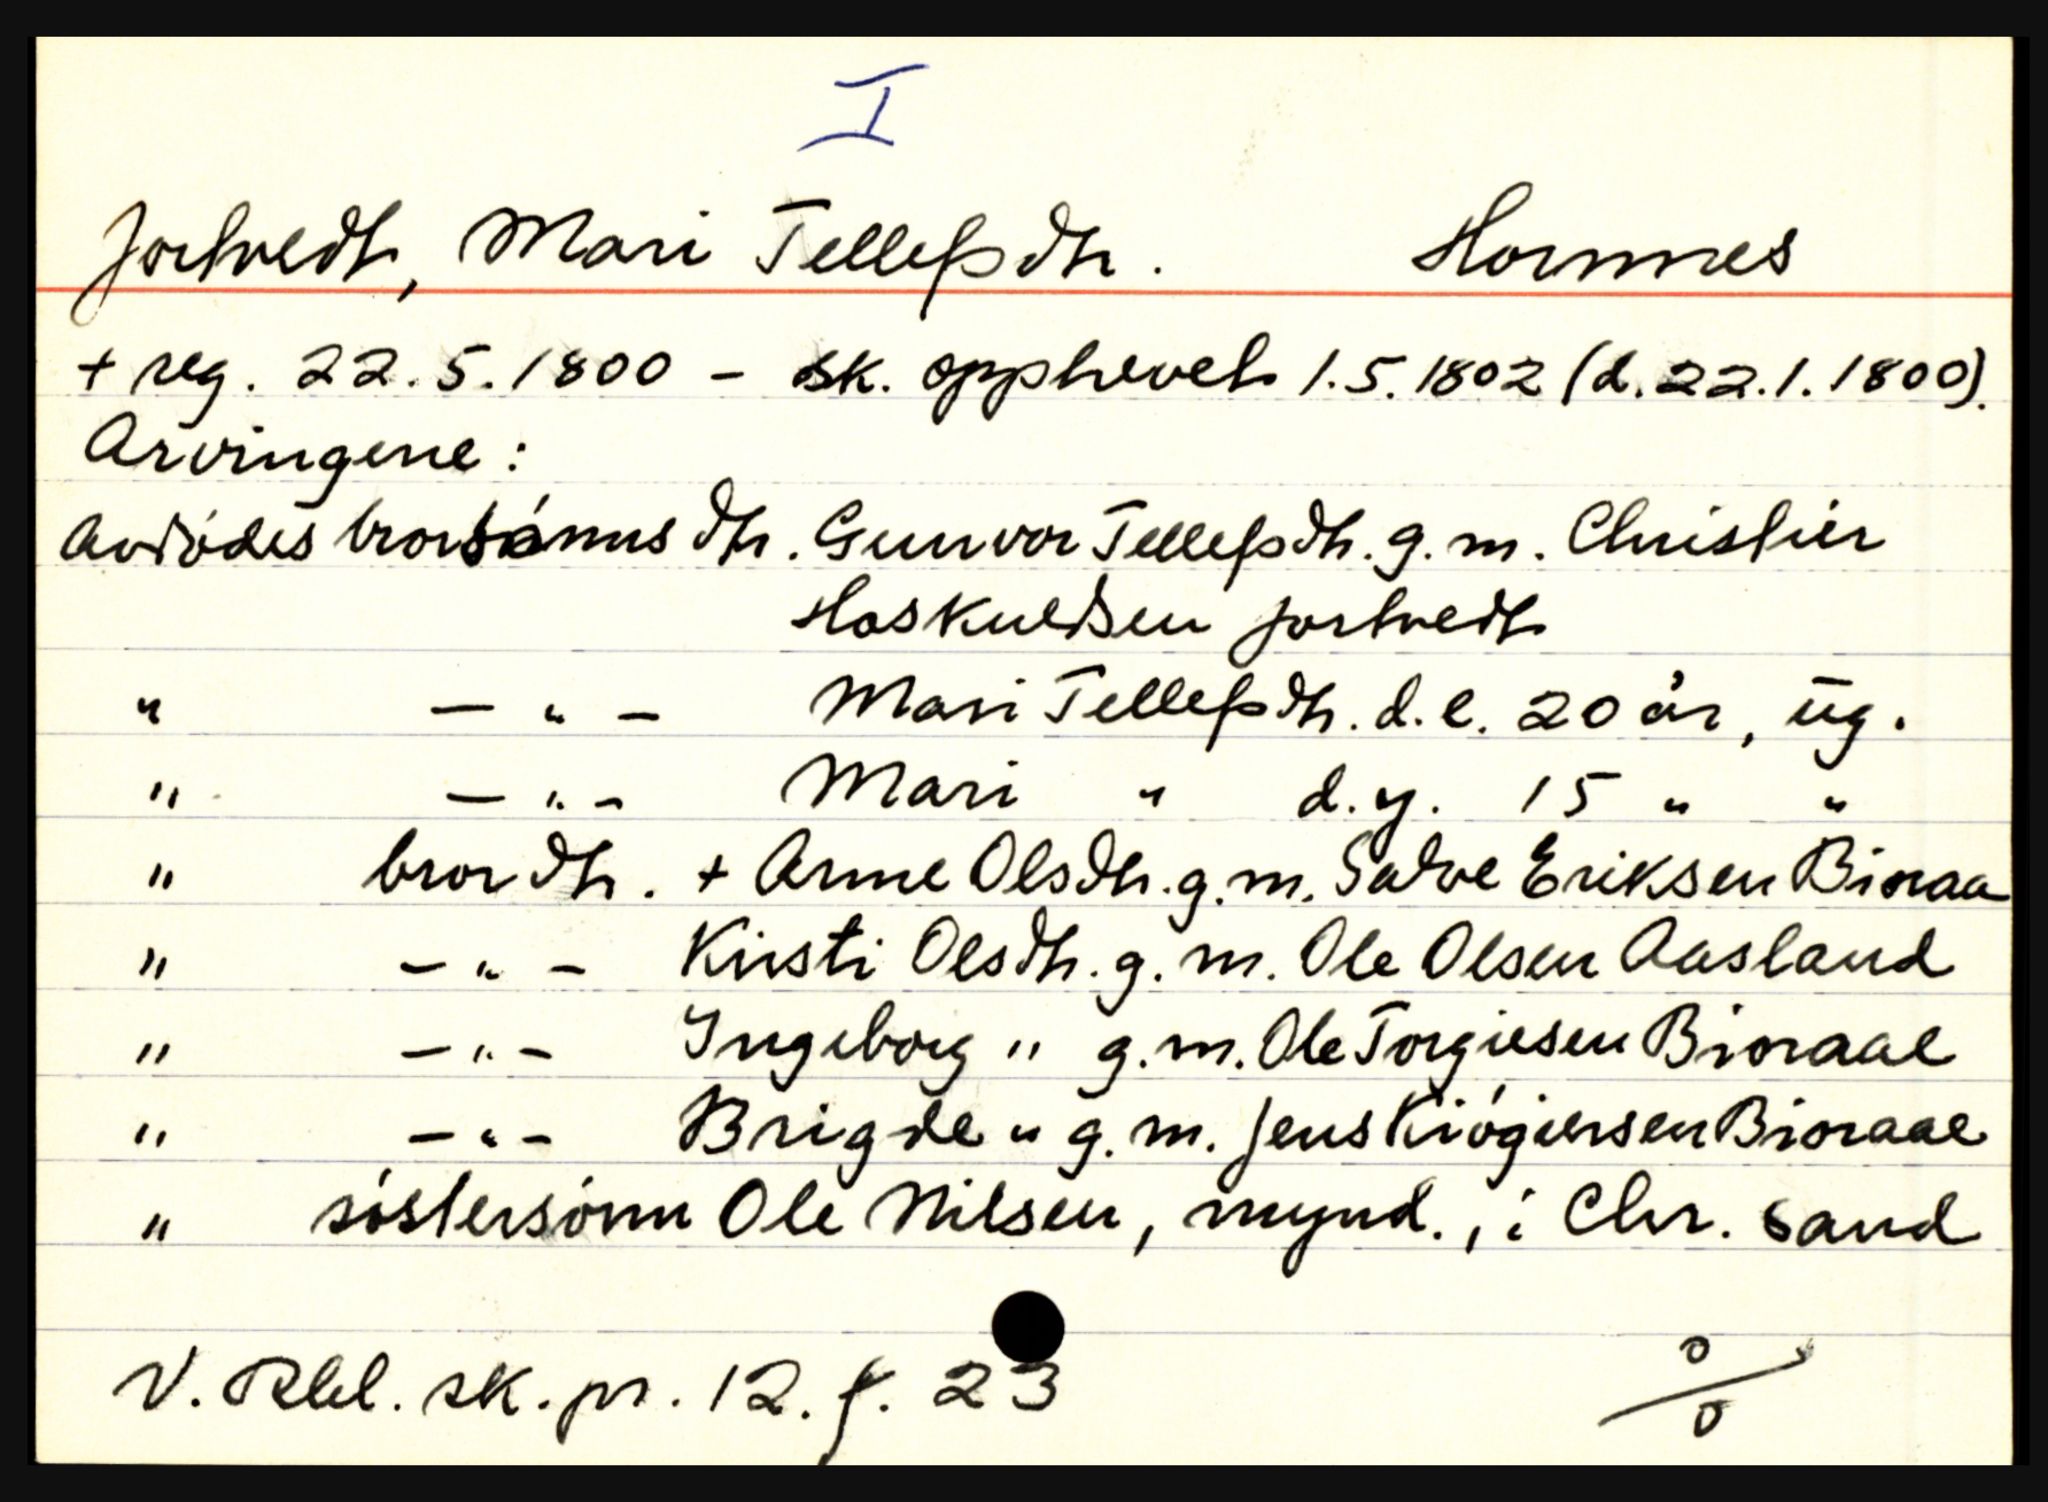 I
Jortvedt, Mari Tellefsdtr. Hornnes
+ reg. 22.5.1800 - sk. opphevet 1.5.1802 (d. 22.1.1800).
Arvingene:
Avdódes brorsónns dtr. Gunvor Tellefsdtr. g.m. Christier
Hoskuldsen Jortvedt
" - " - Mari Tellefsdtr. d.e. 20 år, ūg.
" - " - Mari " d.y. 15 " "
" bror dtr. + Anne Olsdtr. g.m. Salve Eriksen Bioraa
" - " - Kirsti Olsdtr. g.m. Ole Olsen Aasland
" - " - Ingeborg " g.m. Ole Torgiesen Bioraae
" - " - Brigde " g.m. Jens Kiógiersen Bioraae
" sóstersónn Ole Nilsen, mynd., i Chr. sand
V. Rbl. sk. pr. 12. f. 23
0/0